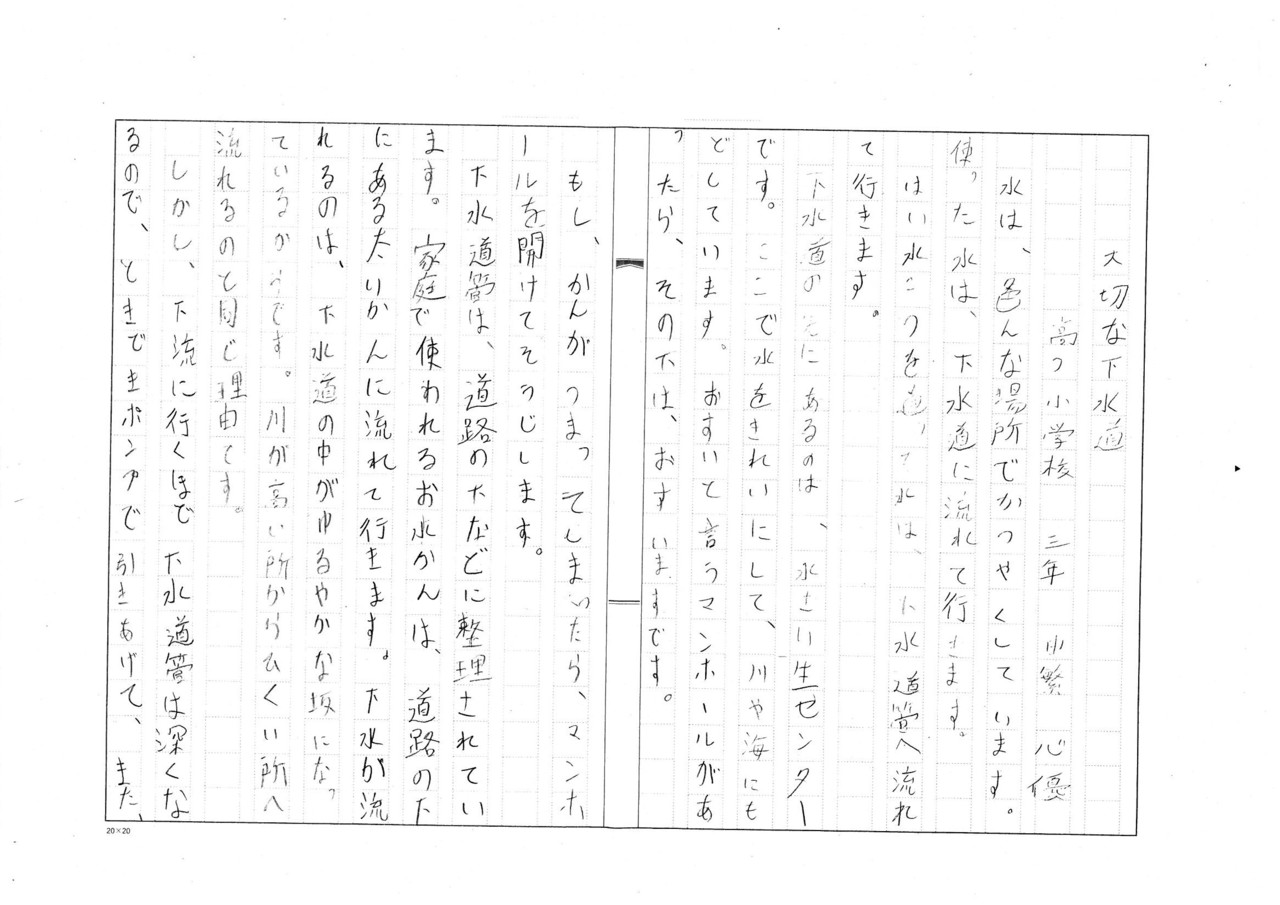 大切な下水道
高つ小学校 三年 小繁 心優
水は、色んな場所でかつやくしています。
使った水は、下水道に流れて行きます。
はい水こうを通って水は、下水道管へ流れ
て行きます。
下水道の先にあるのは、水さい生センター
です。ここで水をきれいにして、川や海にも
どしています。おすいと言うマンホールがあ
ったら、その下は、おすいますです。
もし、かんがつまってしまいたら、マンホ
ールを開けてそうじします。
下水道管は、道路の下などに整理されてい
ます。家庭で使われるお水かんは、道路の下
にある太いかんに流れて行きます。下水が流
れるのは、下水道の中がゆるやかな坂になっ
ているからです。川が高い所からひくい所へ
流れるのと同じ理由です。
しかし、下流に行くほど下水道管は深くな
るので、ときどきポンプで引きあげて、また、
20×20